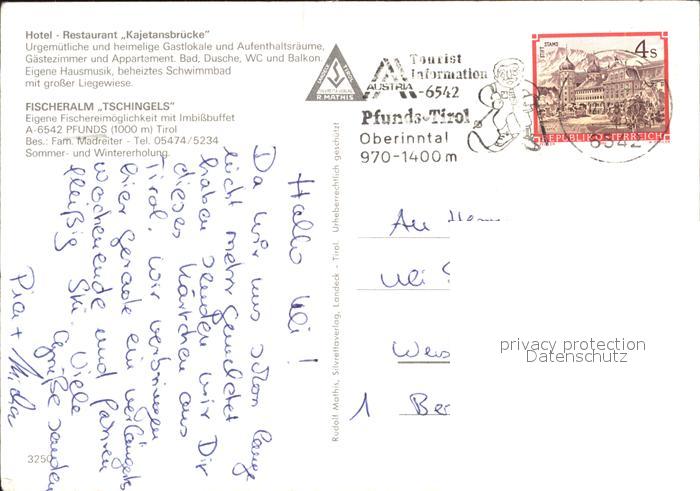 Hotel - Restaurant „Kajetansbrücke"
Urgemütliche und heimelige Gastlokale und Aufenthaltsräume,
Gästezimmer und Appartement. Bad, Dusche, WC und Balkon.
Eigene Hausmusik, beheiztes Schwimmbad
mit großer Liegewiese.
FISCHERALM „TSCHINGELS"
Eigene Fischereimöglichkeit mit Imbißbuffet
A-6542 PFUNDS (1000 m) Tirol
Bes.: Fam. Madreiter - Tel. 05474/5234
Sommer- und Wintererholung.
R. MATHIS
AUSTRIA
Tourist
Information
-6542
Pfunds-Tirol
Oberinntal
970-1400 m
STIFT STAMS
4 S
REPUBLIK ÖSTERREICH
6542
Hallo Uli!
Da wir uns schon lange
nicht mehr gemeldet
haben senden wir Dir
dieses Kärtchen aus
Tirol. Wir verbringen
hier gerade ein verlängertes
Wochenende und fahren
fleißig Ski. Viele
Grüße senden
Pia + Micha
Rudolf Mathis, Silvrettaverlag, Landeck - Tirol. Urheberrechtlich geschützt
An
Uli
1 Ber
3250
privacy protection
Datenschutz